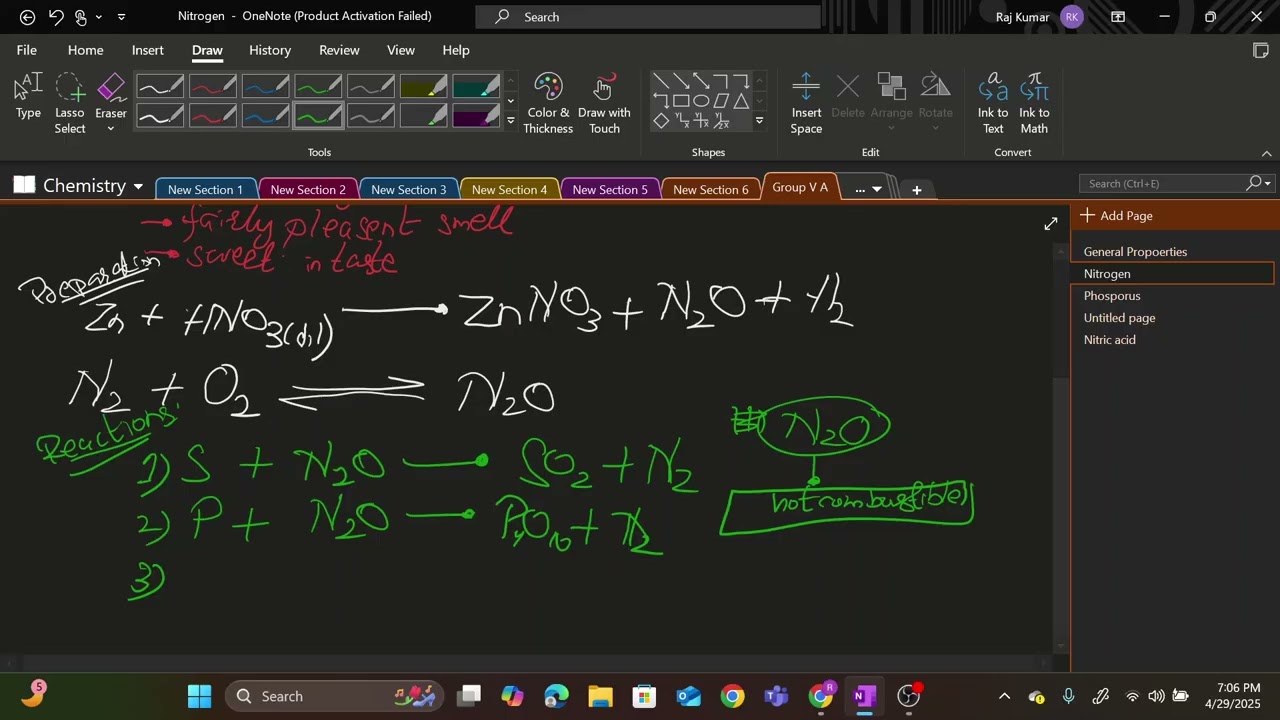 Nitrogen - OneNote (Product Activation Failed)
Search
Raj Kumar
RK
File
Home
Insert
Draw
History
Review
View
Help
Type
Lasso Select
Eraser
Color & Thickness
Draw with Touch
Insert Space
Delete
Arrange
Rotate
Ink to Text
Ink to Math
Tools
Shapes
Edit
Convert
Chemistry
New Section 1
New Section 2
New Section 3
New Section 4
New Section 5
New Section 6
Group V A
...
Search (Ctrl+E)
Add Page
General Propoerties
Nitrogen
Phosporus
Untitled page
Nitric acid
→ fairly pleasent smell
→ sweet in taste
Preparation
Zn + HNO3(dil) → ZnNO3 + N2O + H2
N2 + O2 ⇌ N2O
Reactions:
1) S + N2O → SO2 + N2
2) P + N2O → P4O10 + N2
3)
N2O
not combustible
5
Search
7:06 PM
4/29/2025